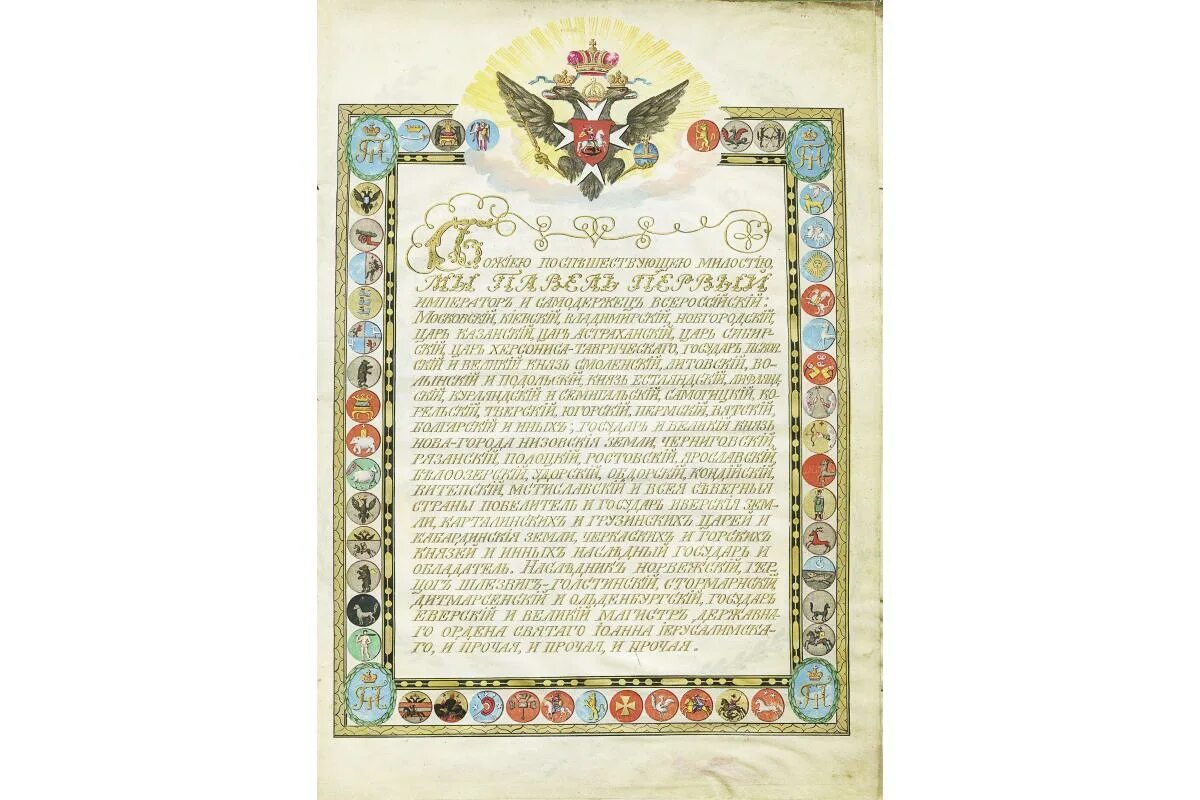 Божіею поспѣшествующею милостію,
МЫ ПАВЕЛЪ ПЕРВЫЙ
императоръ и самодержецъ всероссійскій:
Московскій, Кіевскій, Владимирскій, Новгородскій,
царь Казанскій, царь Астраханскій, царь Сибир-
скій, царь Херсониса-Таврическаго, государь Псков-
скій и великій князь Смоленскій, Литовскій, Во-
лынскій и Подольскій, князь Естляндскій, Лифлянд-
скій, Курляндскій и Семигальскій, Самогицкій, Ко-
рельскій, Тверскій, Югорскій, Пермскій, Вятскій,
Болгарскій и иныхъ; государь и великій князь
Нова-города Низовскія земли, Черниговскій,
Рязанскій, Полоцкій, Ростовскій, Ярославскій,
Бѣлоозерскій, Удорскій, Обдорскій, Кондійскій,
Витепскій, Мстиславскій и всея сѣверныя
страны повелитель и государь Иверскія зем-
ли, Карталинскихъ и Грузинскихъ царей и
Кабардинскія земли, Черкаскихъ и Горскихъ
князей и инныхъ наслѣдный государь и
обладатель. Наслѣдникъ Норвежскій, гер-
цогъ Шлезвигъ-Голстинскій, Стормарнскій,
Дитмарсенскій и Ольденбургскій, государь
Еверскій и великій магистръ державна-
го ордена святаго Іоанна Іерусалимска-
го, и прочая, и прочая, и прочая.